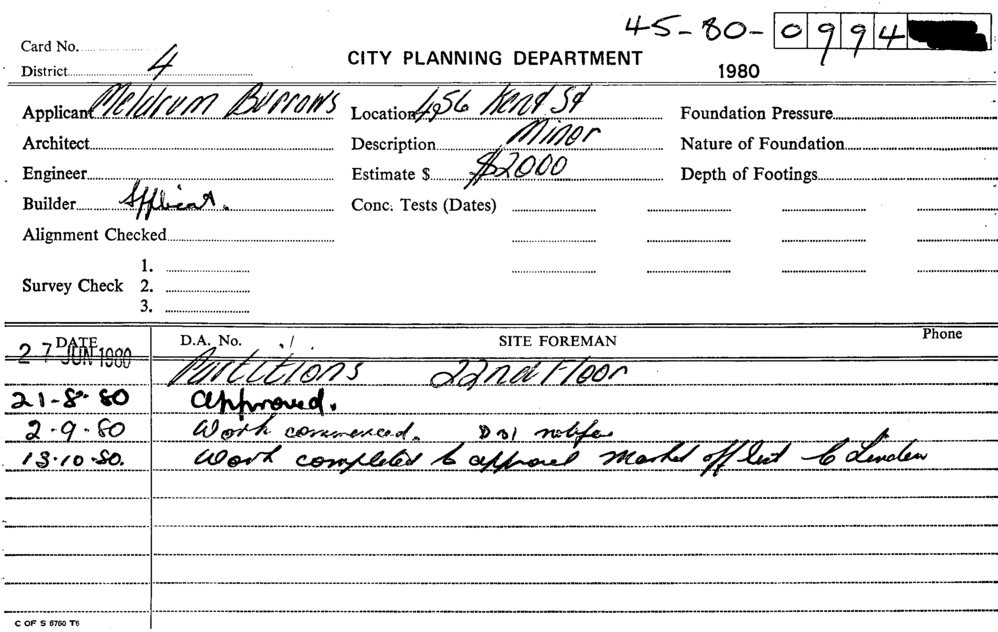 45-80-0994
Card No.
District 4
CITY PLANNING DEPARTMENT
1980
Applicant Meldrum Burrows Location 456 Kent St Foundation Pressure
Architect Description Minor Nature of Foundation
Engineer Estimate $ $2000 Depth of Footings
Builder Applicant. Conc. Tests (Dates)
Alignment Checked
1.
Survey Check 2.
3.
DATE D.A. No. SITE FOREMAN Phone
27 JUN 1980 Partitions 22nd Floor
21-8-80 approved.
2-9-80 Work commenced.
13-10-80. Work completed to approval Marked off list C Linden
C OF S 6760 T6